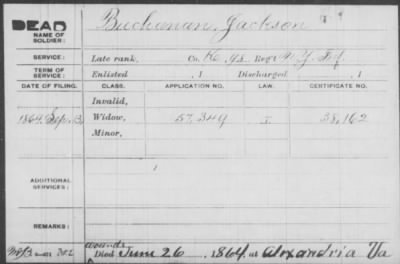 DEAD
NAME OF SOLDIER:
Buchanan, Jackson
SERVICE:
Late rank, Co. K, 98 Reg't N.Y. Inf.
TERM OF SERVICE:
Enlisted , 1 Discharged , 1
DATE OF FILING. CLASS. APPLICATION NO. LAW. CERTIFICATE NO.
Invalid,
1864, Sep. 13, Widow, 57,349 I. 38,162
Minor,
ADDITIONAL SERVICES:
REMARKS:
wounds
Died June 26, 1864, at Alexandria Va